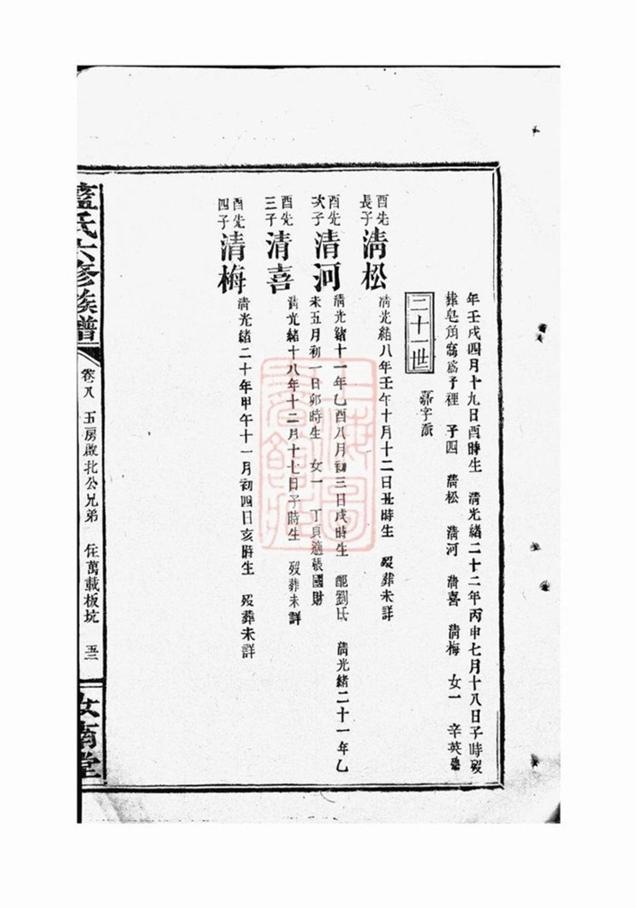 年壬戌四月十九日酉時生　清光緒二十二年丙申七月十八日子時歿
葬皂角窩爲子裡　子四　清松　清河　清喜　清梅　女一　辛英
二十一世
字派
酉先長子清松　清光緒八年壬午十月十二日丑時生　歿葬未詳
酉先次子清河　清光緒十一年乙酉八月初三日戌時生　配劉氏　清光緒二十一年乙
未五月初一日卯時生　女一　丁貝適張國財
酉先三子清喜　清光緒十八年十二月十七日子時生　歿葬未詳
酉先四子清梅　清光緒二十年甲午十一月初四日亥時生　歿葬未詳
藍氏六修族譜
卷八　五房啟北公兄弟　住萬載板坑　五三
汝南堂
上海圖書館藏